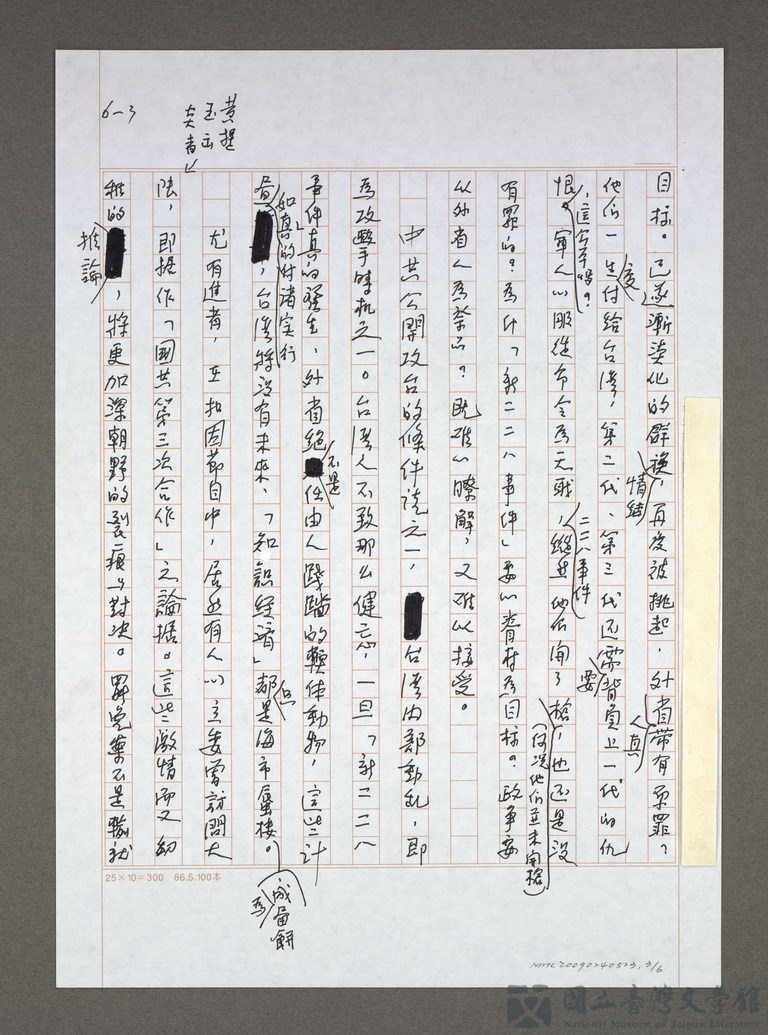 黃提
玉云
炎者
6-3
目標。已逐漸淡化的群族情結，再度被挑起，外省人真帶有原罪？
他們一生交付給台灣，第二代、第三代还需要揹負上一代的仇
恨，這公平嗎？軍人以服從命令為天職，二二八事件，縱然他們開了槍，（何況他們並未開槍）也还是沒
有罪的？為什「新二二八事件」要以眷村為目標？政爭要
以外省人為祭品？既难以瞭解，又难以接受。
中共公開攻台的條件說之一，台灣內部動乱，即
為攻擊時机之一。台灣人不致那么健忘，一旦「新二二八
事件」真的發生，外省絕不是任由人踐踏的軟体動物，這些計
畫如真的付諸实行，台灣將沒有未來，「知識經濟」都只是海市蜃樓。成為畫餅
尤有進者，在扣因節目中，居然有人以立委曾訪問大
陸，即提作「國共第三次合作」之論据。這些激情而又幼
稚的推論，將更加深朝野的裂痕与對決。罷免案不是輸就
25×10=300 86.5.100本
NMTL20090240523, 3/6
國立臺灣文學館
National Museum of Taiwan Literature